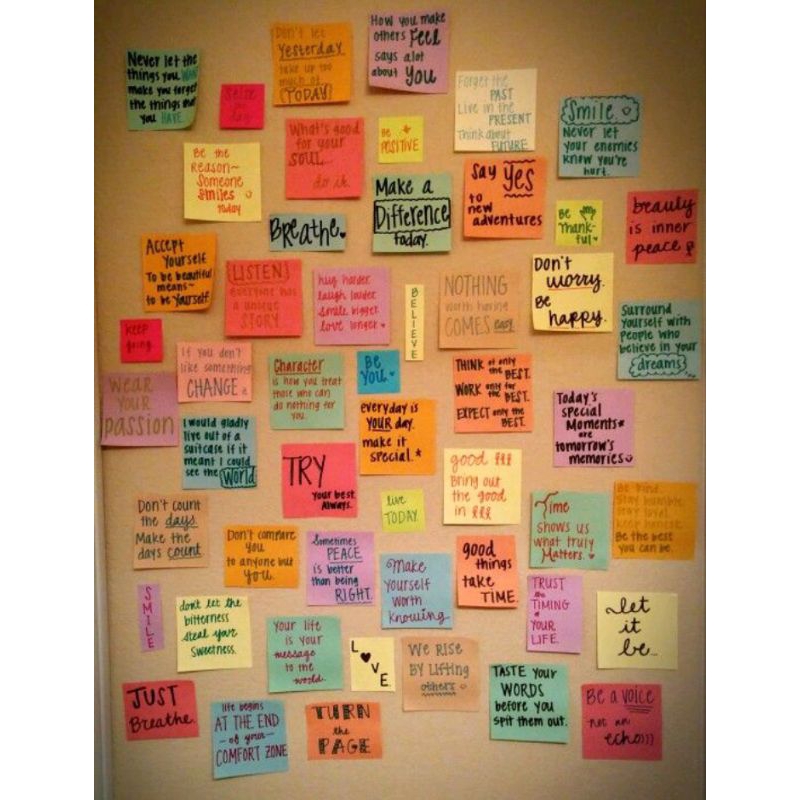 Never let the
things you WANT
make you forget
the things that
you HAVE.
Seize
the
day
Don't let
Yesterday
take up too
much of
(TODAY)
How you make
others Feel
says alot
about You
Forget the
PAST
Live in the
PRESENT
Think about
FUTURE
Smile
Never let
your enemies
know you're
hurt.
Be the
Reason~
Someone
Smiles
Today
What's good
for your
SOUL...
do it.
Be
POSITIVE
Make a
Difference
today.
Say Yes
to
new
adventures
Be
Thank-
ful
beauty
is inner
peace
Breathe.
Accept
Yourself.
To be beautiful
means~
to be Yourself.
LISTEN!
everyone has
a unique
STORY
hug harder
laugh louder
smile bigger
love longer
BELIEVE
NOTHING
worth having
COMES easy.
Don't
worry.
Be
happy.
Surround
yourself with
people who
believe in your
dreams
keep
going
If you don't
like something
CHANGE it
Character
is how you treat
those who can
do nothing for
you.
Be
YOU.
THINK of only
the BEST.
WORK only for
the BEST.
EXPECT only the
BEST.
WEAR
YOUR
passion
I would gladly
live out of a
suitcase if it
meant I could
see the World
everyday is
YOUR day.
make it
special.*
Today's
special
Moments*
are
tomorrow's
memories
TRY
your best.
Always.
good !!!
Bring out
the good
in !!!
live
TODAY.
Don't count
the days
Make the
days count.
Don't compare
you
to anyone but
you.
Sometimes
PEACE
is better
than being
RIGHT.
Time
shows us
what truly
Matters.
Be kind.
Stay humble.
Stay loyal.
keep honest.
Be the best
you can be.
Make
yourself
worth
knowing
good
things
take
TIME.
TRUST
the
TIMING
of
YOUR
LIFE.
let
it
be...
SMILE
don't let the
bitterness
steal your
sweetness.
your life
is your
message
to the
world.
LOVE
We Rise
By Lifting
others
TASTE your
WORDS
before you
spit them out.
JUST
Breathe.
life begins
AT THE END
-of your-
COMFORT ZONE
TURN
the
PAGE
Be a voice
not an
echo)))